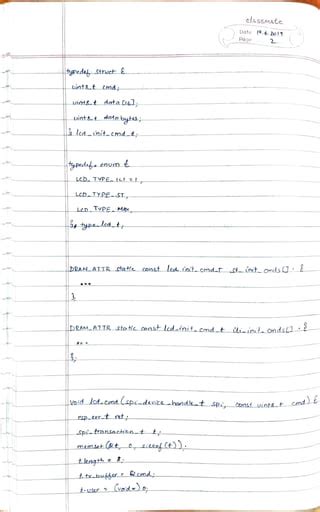 classmate
Date 19.6.2019
Page 2
typedef struct {
uint8_t cmd;
uint8_t data [16];
uint8_t databytes;
} lcd_init_cmd_t;
typedef enum {
LCD_TYPE_ILI = 1,
LCD_TYPE_ST,
LCD_TYPE_MAX,
} type_lcd_t;
DRAM_ATTR static const lcd_init_cmd_t st_init_cmds[] = {
...
}
DRAM_ATTR static const lcd_init_cmd_t ili_init_cmds[] = {
...
};
void lcd_cmd (spi_device_handle_t spi, const uint8_t cmd) {
esp_err_t ret;
spi_transaction_t t;
memset (&t, 0, sizeof(t));
t.length = 8;
t.tx_buffer = &cmd;
t.user = (void*) 0;